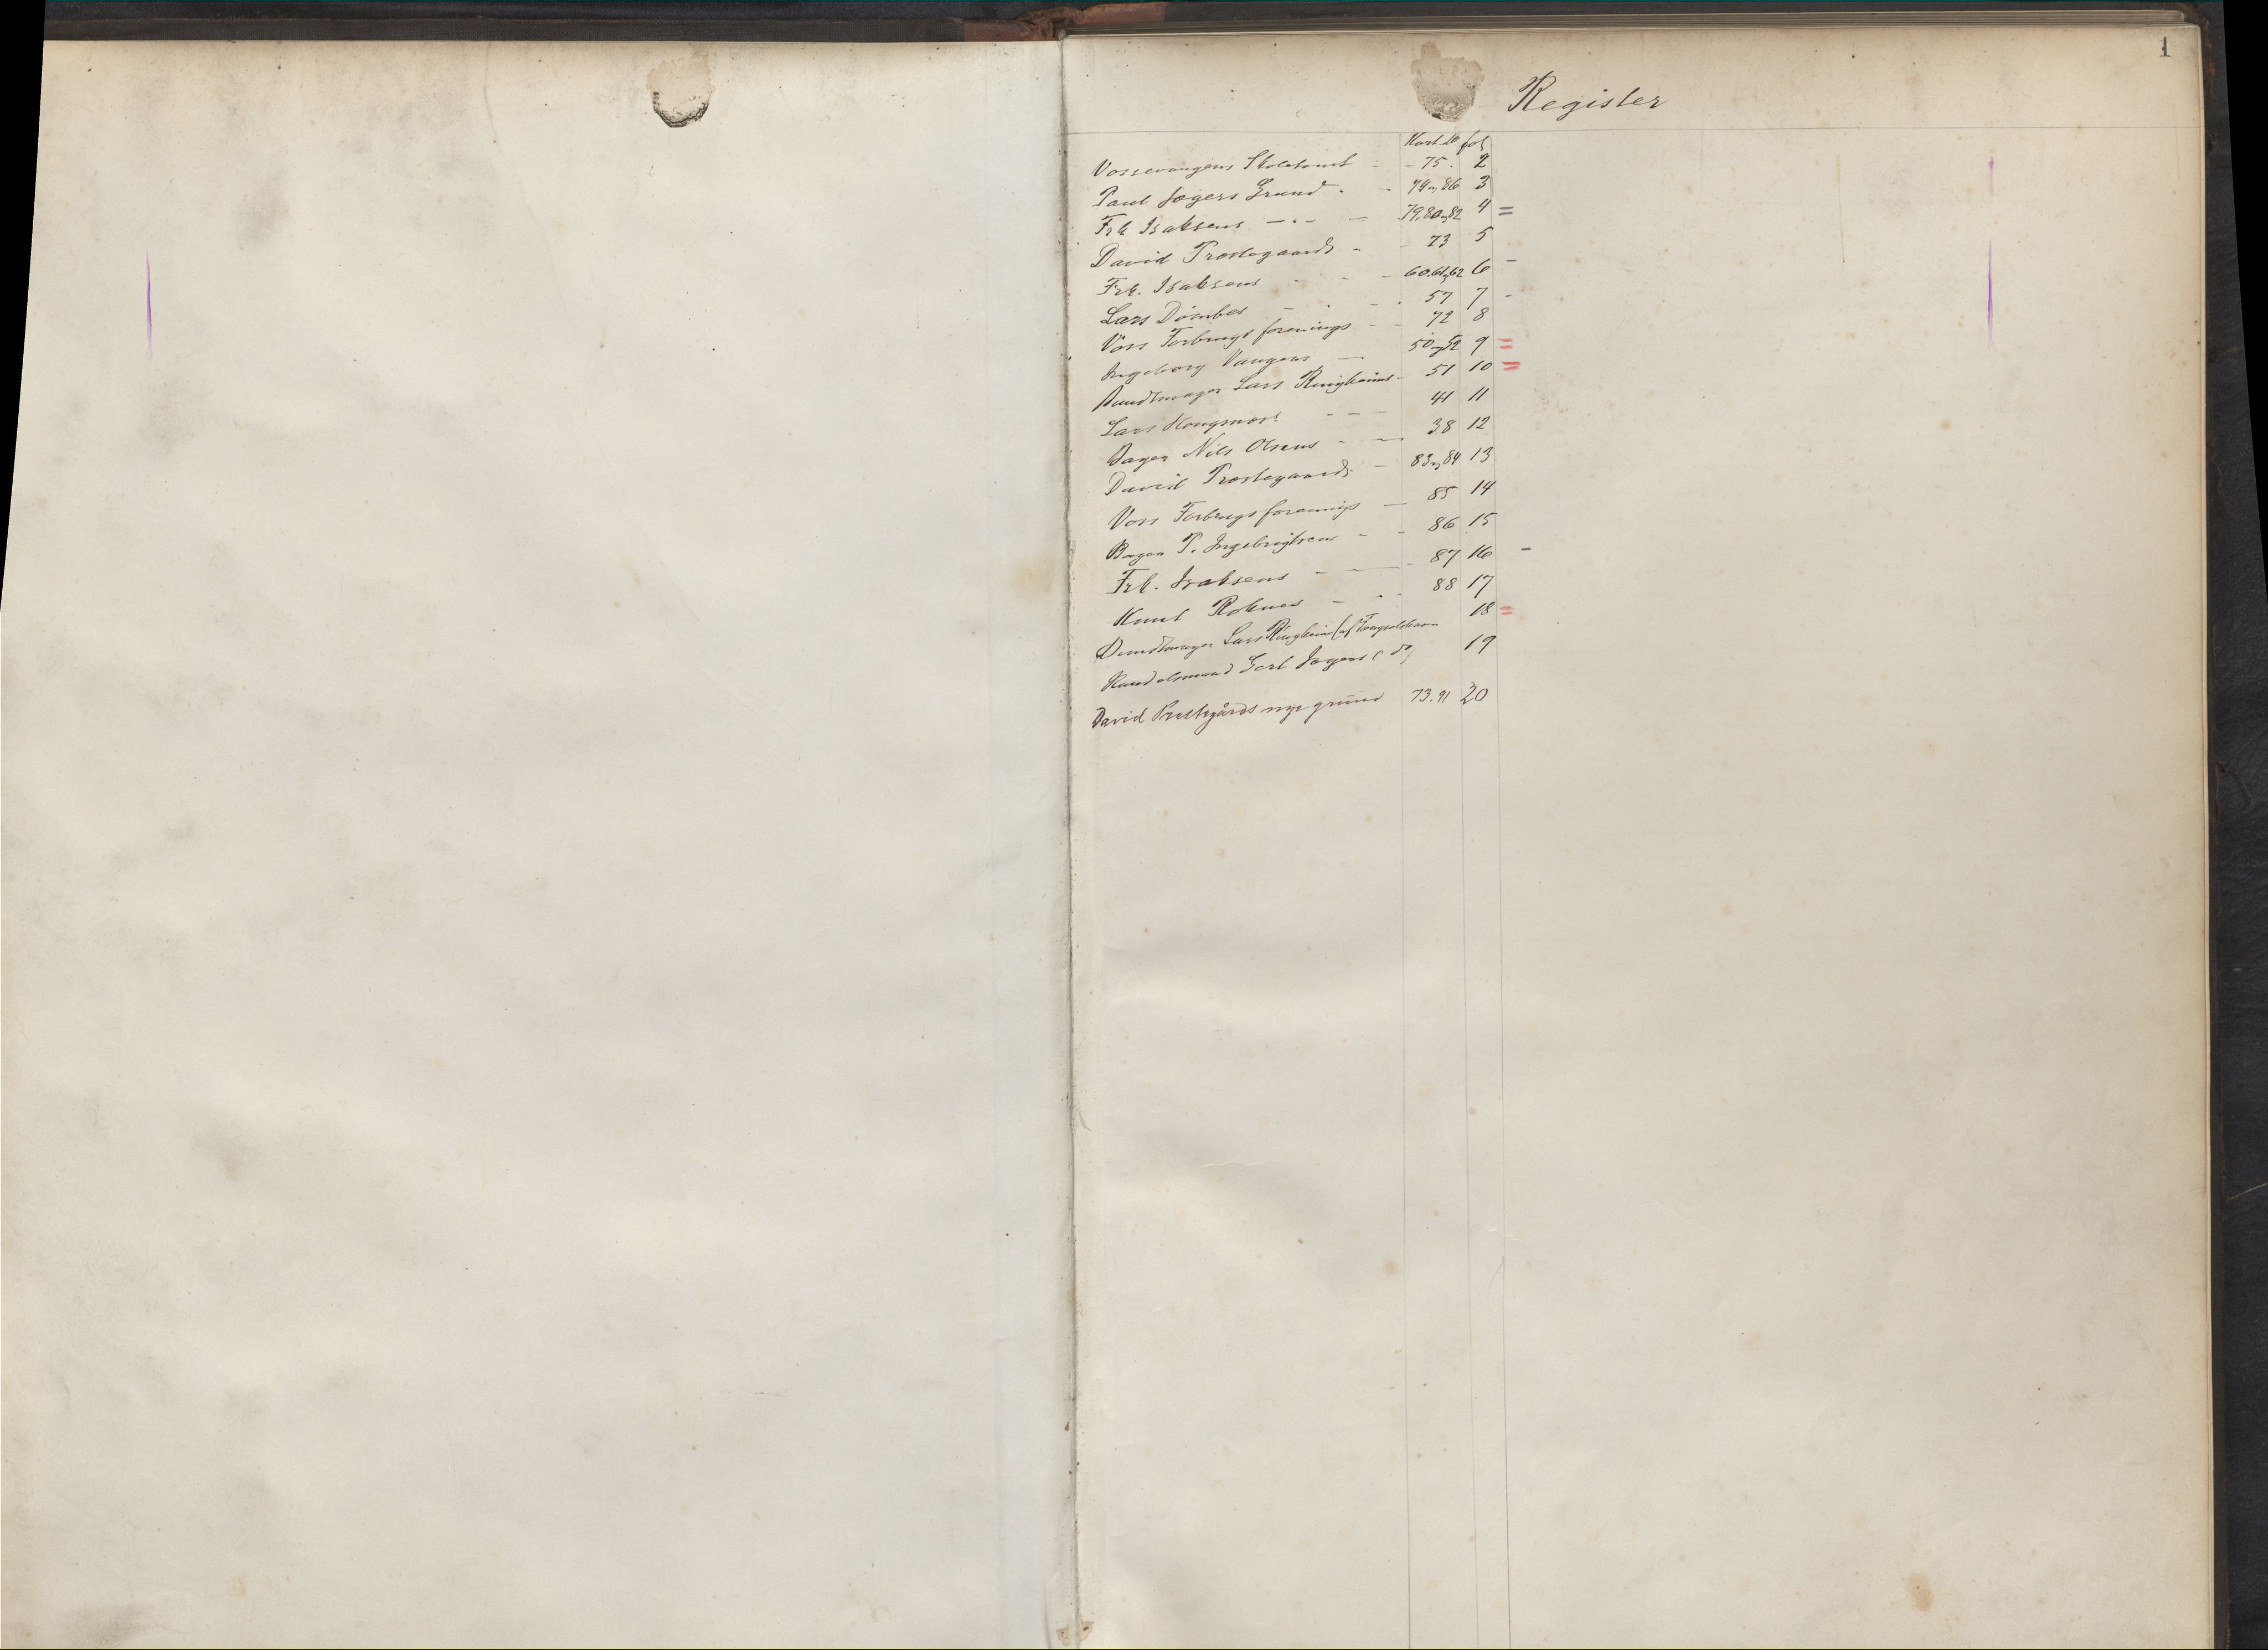 1
Register
Kart № fol.
Vossevangens Skoletomt - - 75. 2
Paul Jægers Grund. - 74 og 86 3
Frk Isaksens - . - - 79, 80 og 82 4 =
David Prestegaards - - 73 5
Frk. Isaksens - - - 60. 61 og 62 6 -
Lars Dømbes - . - . 57 7 -
Voss Forbrugsforenings - - 72 8
Ingeborg Vangens - 50 og 52 9 =
Buntmager Lars Ringheims - 51 10 =
Lars - - - 41 11
Bager Nils Olsens - - 38 12
David Prestegaards - 83 og 84 13
Voss Forbrugsforenings - 85 14
Bager P. Ingebrigtsens - - 86 15
Frk. Isaksens - - 87 16 -
Knut Roknes - - - 88 17
Buntmager Lars Ringheim (af 18 =
Handelsmand Gert Jægers ( do ) 19
David Prestegårds nye grund 73. 91 20